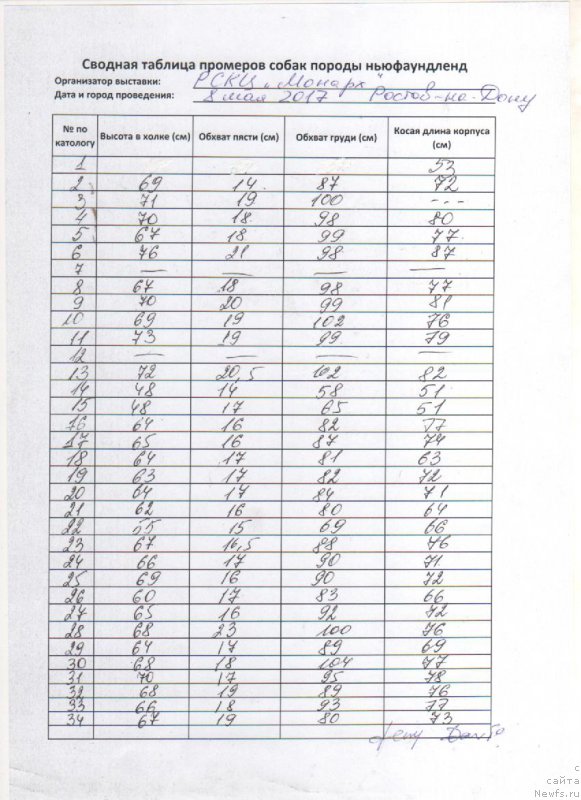 Сводная таблица промеров собак породы ньюфаундленд
Организатор выставки: РСКЦ „Монарх"
Дата и город проведения: 8 мая 2017 Ростов-на-Дону
№ по каталогу Высота в холке (см) Обхват пясти (см) Обхват груди (см) Косая длина корпуса (см)
1 53
2 69 14 87 72
3 71 19 100 ---
4 70 18 98 80
5 67 18 99 77
6 76 21 98 87
7 — — — —
8 67 18 98 77
9 70 20 99 81
10 69 19 102 76
11 73 19 99 79
12 — — — —
13 72 20,5 102 82
14 48 14 58 51
15 48 17 65 51
16 64 16 82 77
17 65 16 87 74
18 64 17 81 63
19 63 17 82 72
20 64 17 84 71
21 62 16 80 64
22 55 15 69 66
23 67 16,5 88 76
24 66 17 90 71
25 69 16 90 72
26 60 17 83 66
27 65 16 92 72
28 68 23 100 76
29 64 17 89 69
30 68 18 104 77
31 70 17 95 78
32 68 19 89 76
33 66 18 93 77
34 67 19 80 73
с
сайта
Newfs.ru